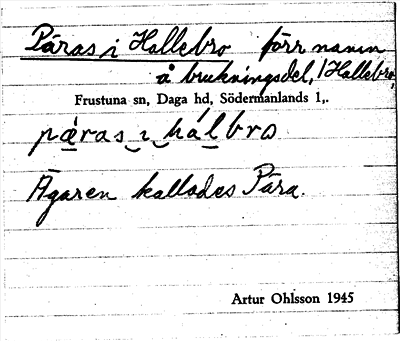 Päras i Hallebro förr namn
å brukningsdel, i Hallebro,
Frustuna sn, Daga hd, Södermanlands l,.
pæras i hálbro
Ägaren kallades Pära.
Artur Ohlsson 1945